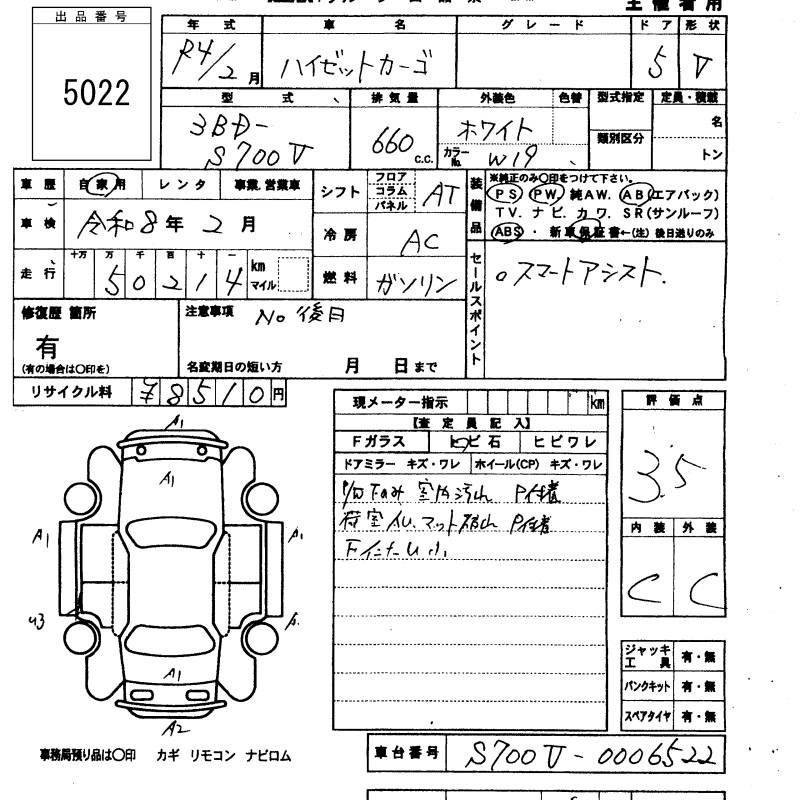 出品番号
5022
年式 車名 グレード ドア 形状
R4/2月 ハイゼットカーゴ 5 V
型式 排気量 外装色 色替 型式指定 定員・積載
3BD-
S700V 660 c.c. ホワイト 類別区分 名
カラーNo. W19 トン
車歴 自家用 レンタ 事業.営業車
車検 令和8年2月
走行 十万 万 千 百 十 一
50214 km マイル
シフト フロア コラム パネル AT
冷房 AC
燃料 ガソリン
装備品 ※純正のみ〇印をつけて下さい。
PS PW. 純AW. AB(エアバック)
TV. ナビ. カワ. SR(サンルーフ)
ABS ・ 新車保証書←(注) 後日送りのみ
セールスポイント
○スマートアシスト.
修復歴 箇所
有
(有の場合は〇印を)
注意事項 No 後日
名変期日の短い方 月 日まで
リサイクル料 ¥8510円
現メーター指示 km
【査定員記入】
Fガラス トビ石 ヒビワレ
ドアミラー キズ・ワレ ホイール(CP) キズ・ワレ
室内汚れ P付着
荷室 マット破れ P付着
評価点
3.5
内装 外装
C C
A1
A1
A1 A1
U3 A.
A1
A2
ジャッキ工具 有・無
パンクキット 有・無
スペアタイヤ 有・無
事務局預り品は〇印 カギ リモコン ナビロム
車台番号 S700V-0006522